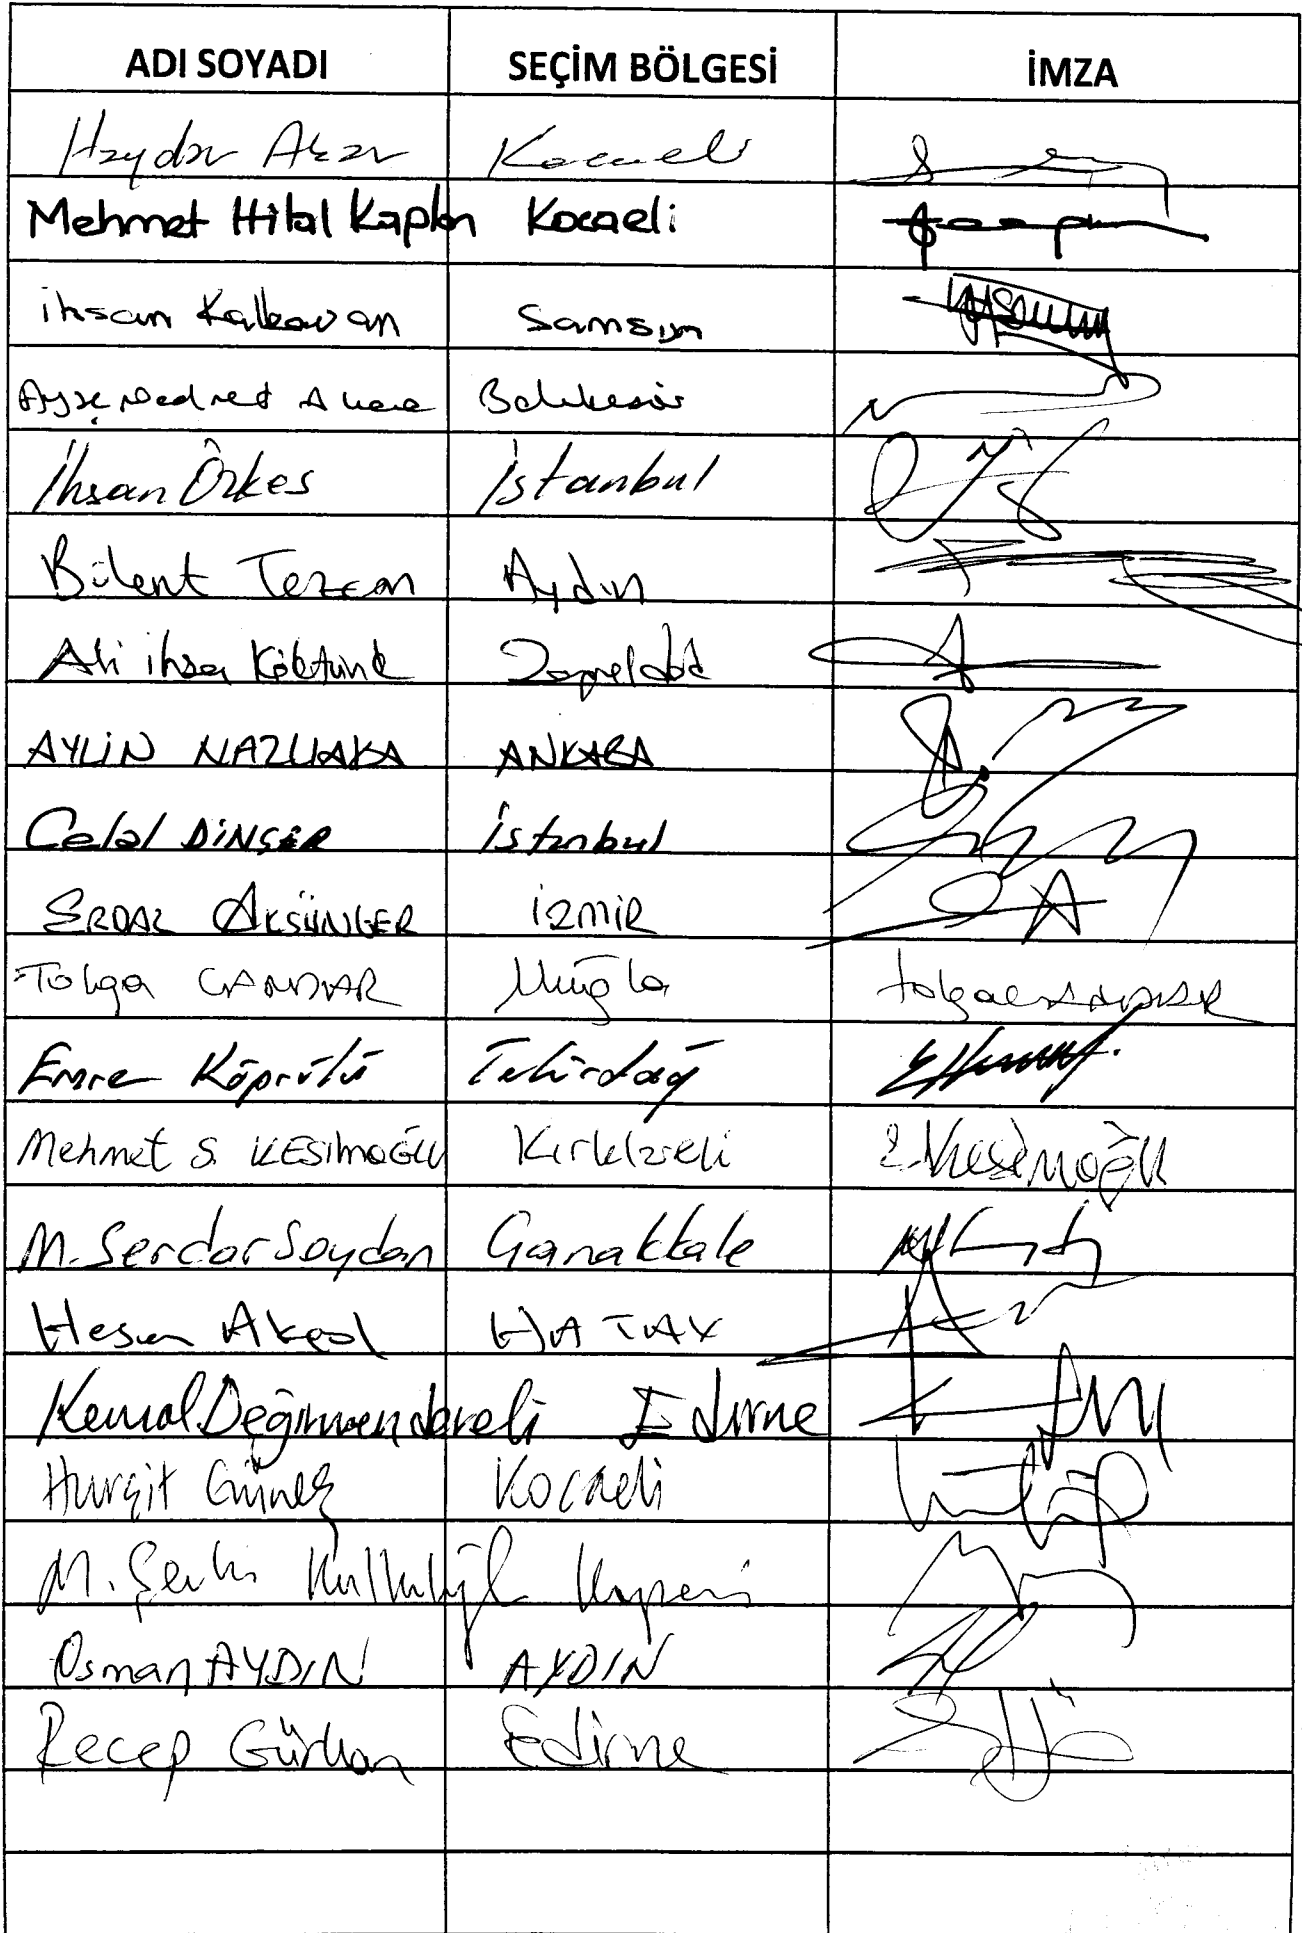 ADI SOYADI SEÇİM BÖLGESİ İMZA
Haydar Akar Kocaeli
Mehmet Hilal Kaplan Kocaeli
ihsan Kalkavan Samsun
Ayşe Nedret Akova Balıkesir
İhsan Özkes İstanbul
Bülent Tezcan Aydın
Ali ihsan Köktürk Zonguldak
AYLİN NAZLIAKA ANKARA
Celal DİNÇER İstanbul
ERDAL AKSÜNGER İZMİR
Tolga ÇANDAR Muğla tolga ÇANDAR
Emre Köprülü Tekirdağ
Mehmet S. KESİMOĞLU Kırklareli Kesimoğlu
M. Serdar Soydan Çanakkale
Hasan Akgöl HATAY
Kemal Değirmendereli Edirne
Hurşit Güneş Kocaeli
M. Şevki Kulkuloğlu Kayseri
Osman AYDIN AYDIN
Recep Gürkan Edirne